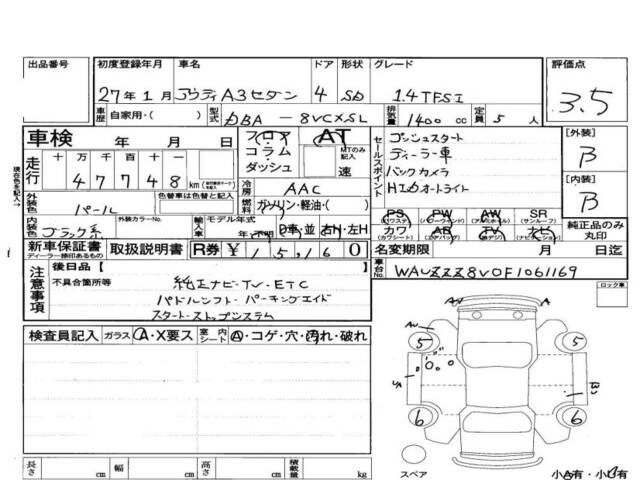 出品番号 初度登録年月 車名 ドア 形状 グレード 評価点
27年1月 アウディA3セダン 4 SD 1.4TFSI 3.5
車歴 自家用・( ) 型式 DBA-8VCXSL 排気量 1400 cc 定員 5 人
車検 年 月 日 フロア コラム ダッシュ AT MTのみ記入 速
セールスポイント
プッシュスタート
ディーラー車
バックカメラ
HIDオートライト
[外装] B
[内装] B
走行 十 万 千 百 十 一
47748 km
冷房 AAC
燃料 ガソリン・軽油・( )
現在色を記入→
外装色 パール 色替車は色替と記入
内装色 ブラック系 外装カラーNo. 輸入車 モデル年式 年・不明 D車・並 右H・左H
PS (パワステ) PW (パワーウィンド) AW (アルミホイール) SR (サンルーフ)
カワ (カワシート) AB (エアバッグ) TV (テレビ) ナビ (ナビゲーション)
純正品のみ丸印
新車保証書 ディーラー捺印あるもの 取扱説明書 R券 ¥15,160
名変期限 月 日迄
車台No. WAUZZZ8V0F1061169
注意事項 後日品【 】
不具合箇所等 純正ナビ・TV・ETC
パドルシフト・パーキングエイド
スタート・ストップシステム
ロック車
検査員記入 ガラス A・X要ス 室内シート A・コゲ・穴・汚れ・破れ
AU A
5 5
6 6
スペア
長さ cm 幅 cm 高さ cm 積載量 kg
小A有・小U有